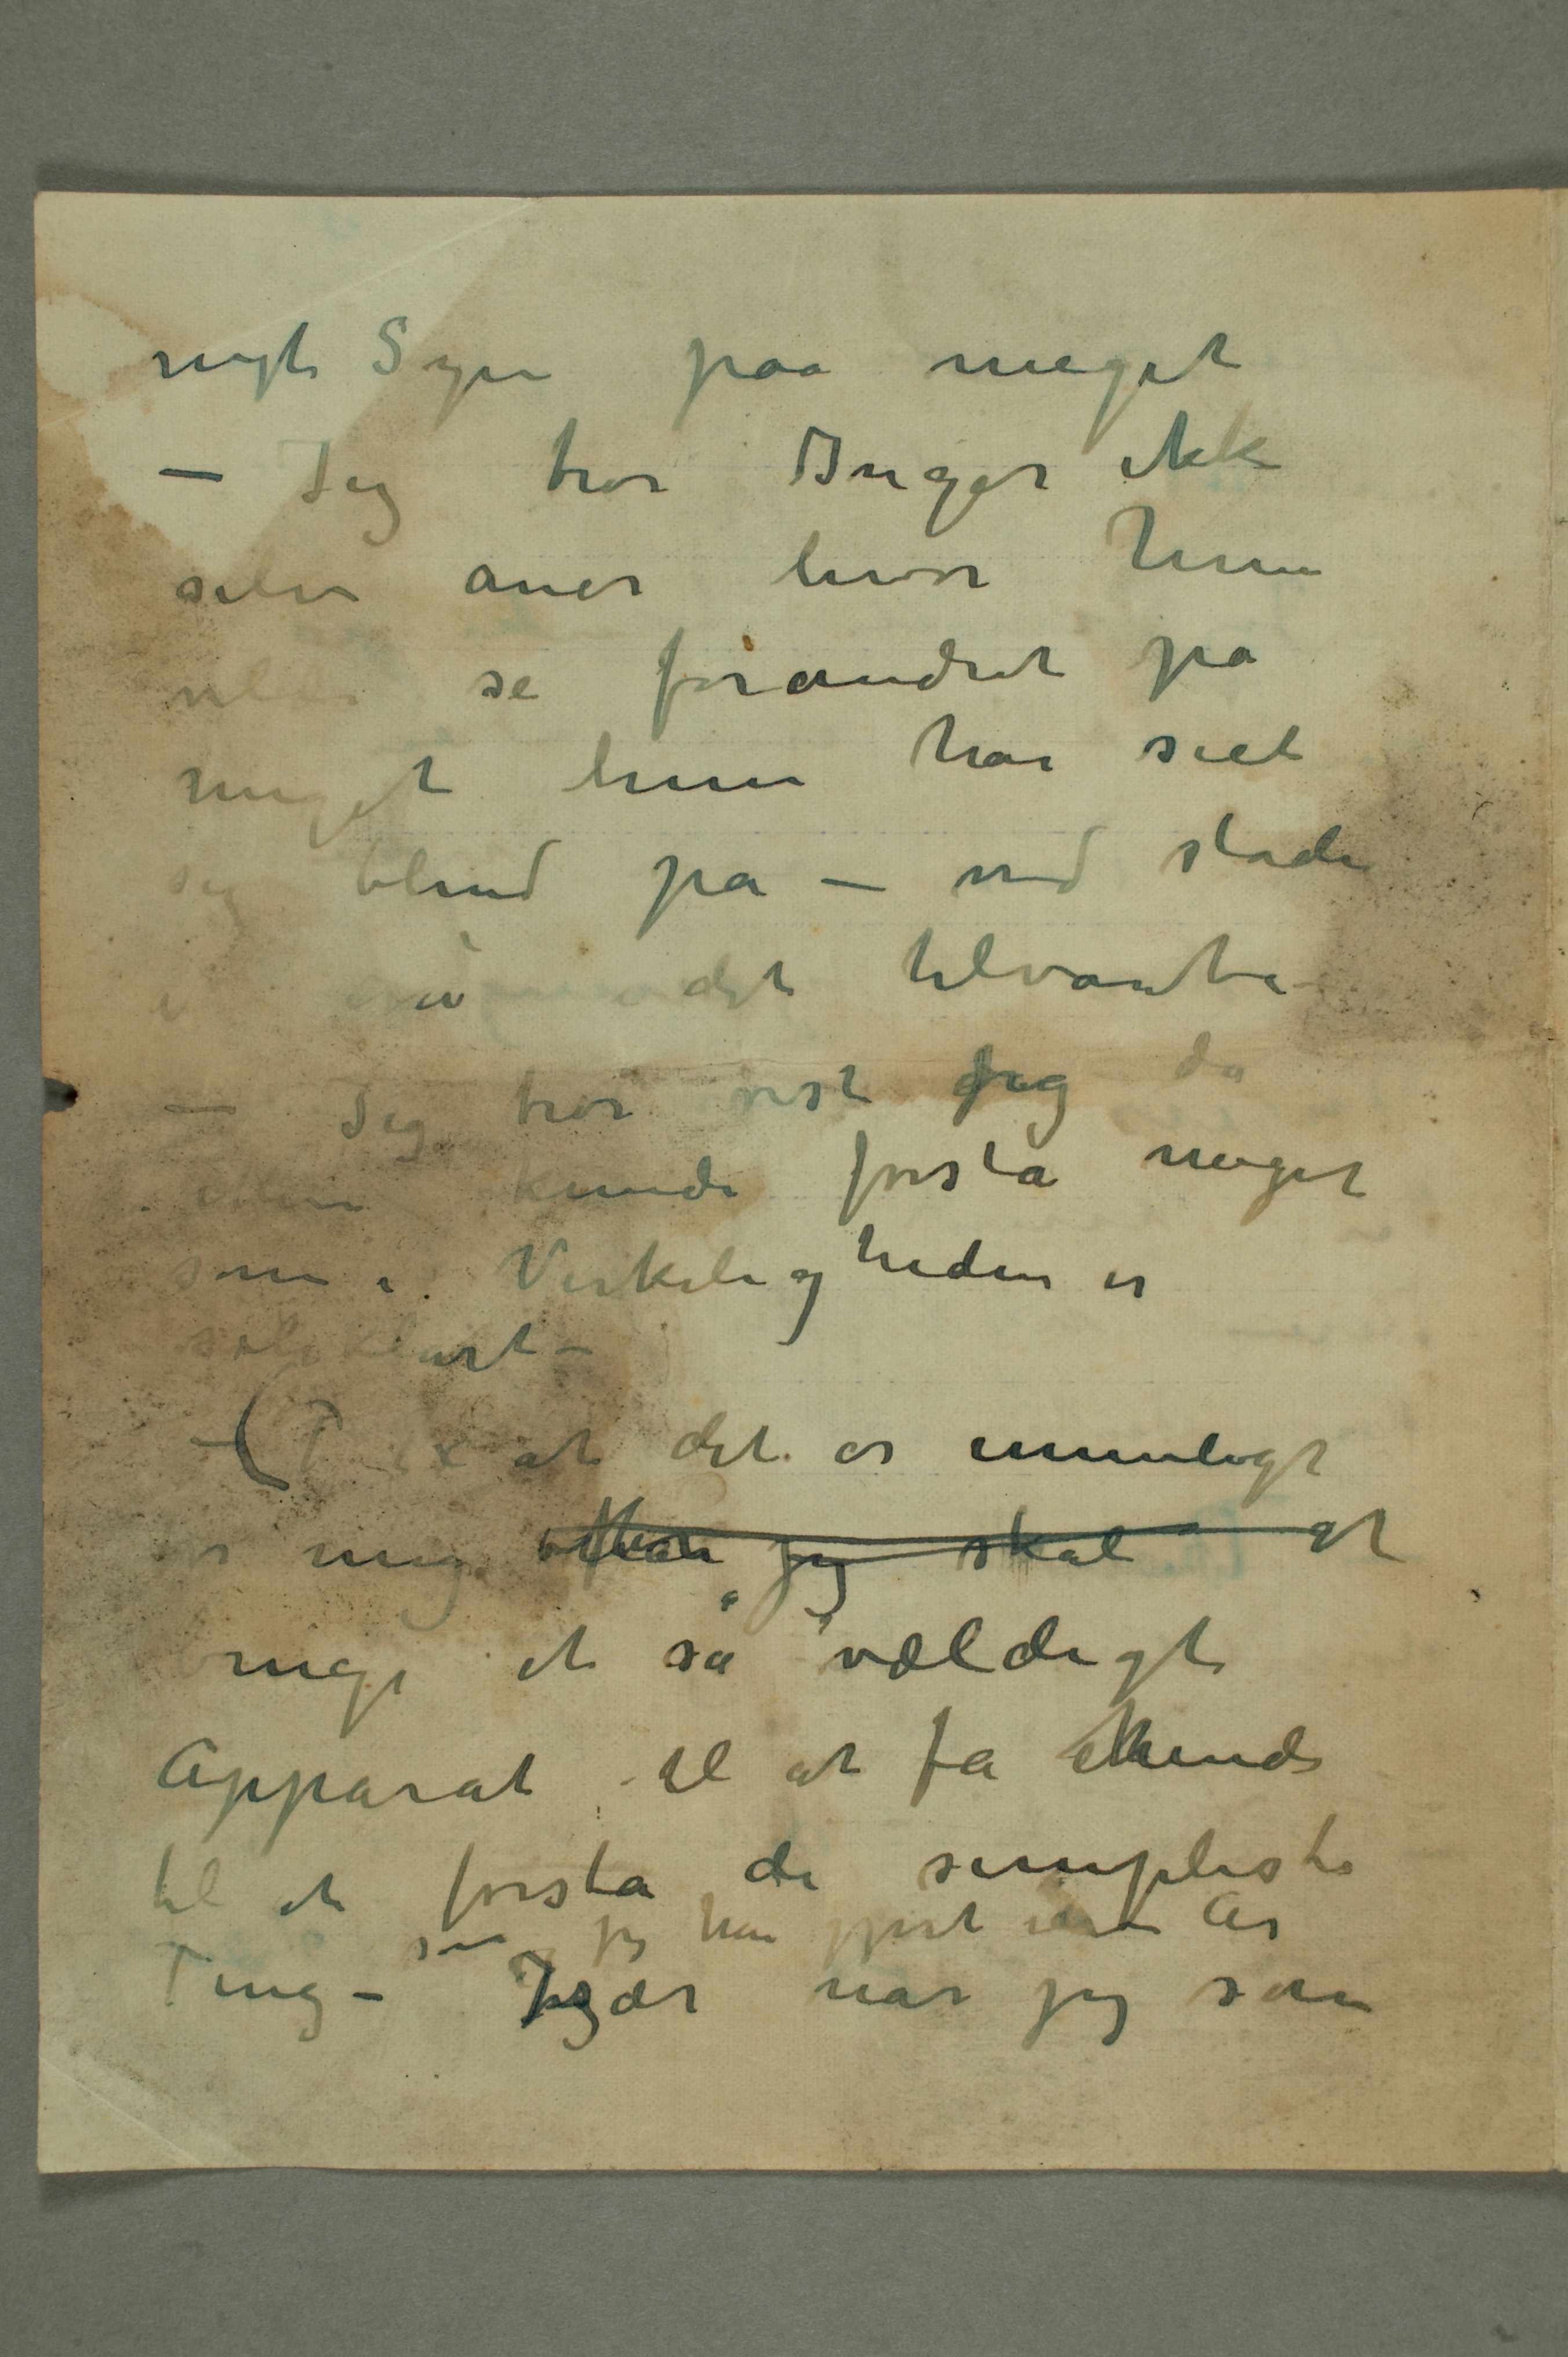 nyt Syn paa meget
– Jeg tror Inger ikke
selv aner hvor hun
vilde se forandret på
meget hun har seet
sig blind på – ved stadig
i det tilvante
– Jeg tror vist jeg da
kunde forstå meget
som i Virkeligheden er
soleklart –
– (T ex at det er umuligt
for mig hvor jeg skal at
bruge et så vældigt
Apparat til at få kende
til at forsta de simpleste
som jeg har gjort i År
Ting – Især når jeg som